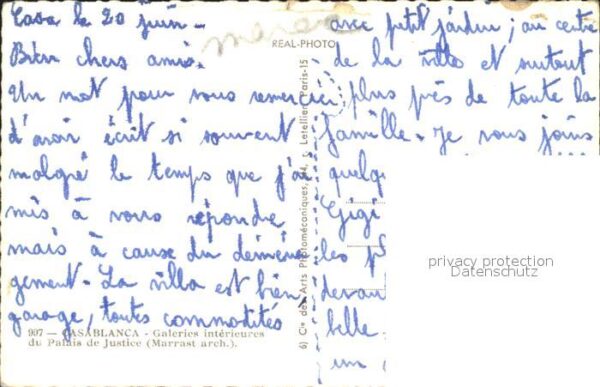 Casa le 20 juin -
Bien chers amis.
Un mot pour vous remercier
d'avoir écrit si souvent
malgré le temps que j'ai
mis à vous répondre
mais à cause du déména
gement. La villa est bien,
garage, toutes commodités
997 — CASABLANCA - Galeries intérieures
du Palais de Justice (Marrast arch.).
merci
REAL-PHOTO
6) Cie des Arts Photomécaniques, 44, r. Letellier, Paris-15
avec petit jardin; au centre
de la ville et surtout
plus près de toute la
famille. Je vous joins
quelq
Gigi
les p
devan
belle
un
privacy protection
Datenschutz